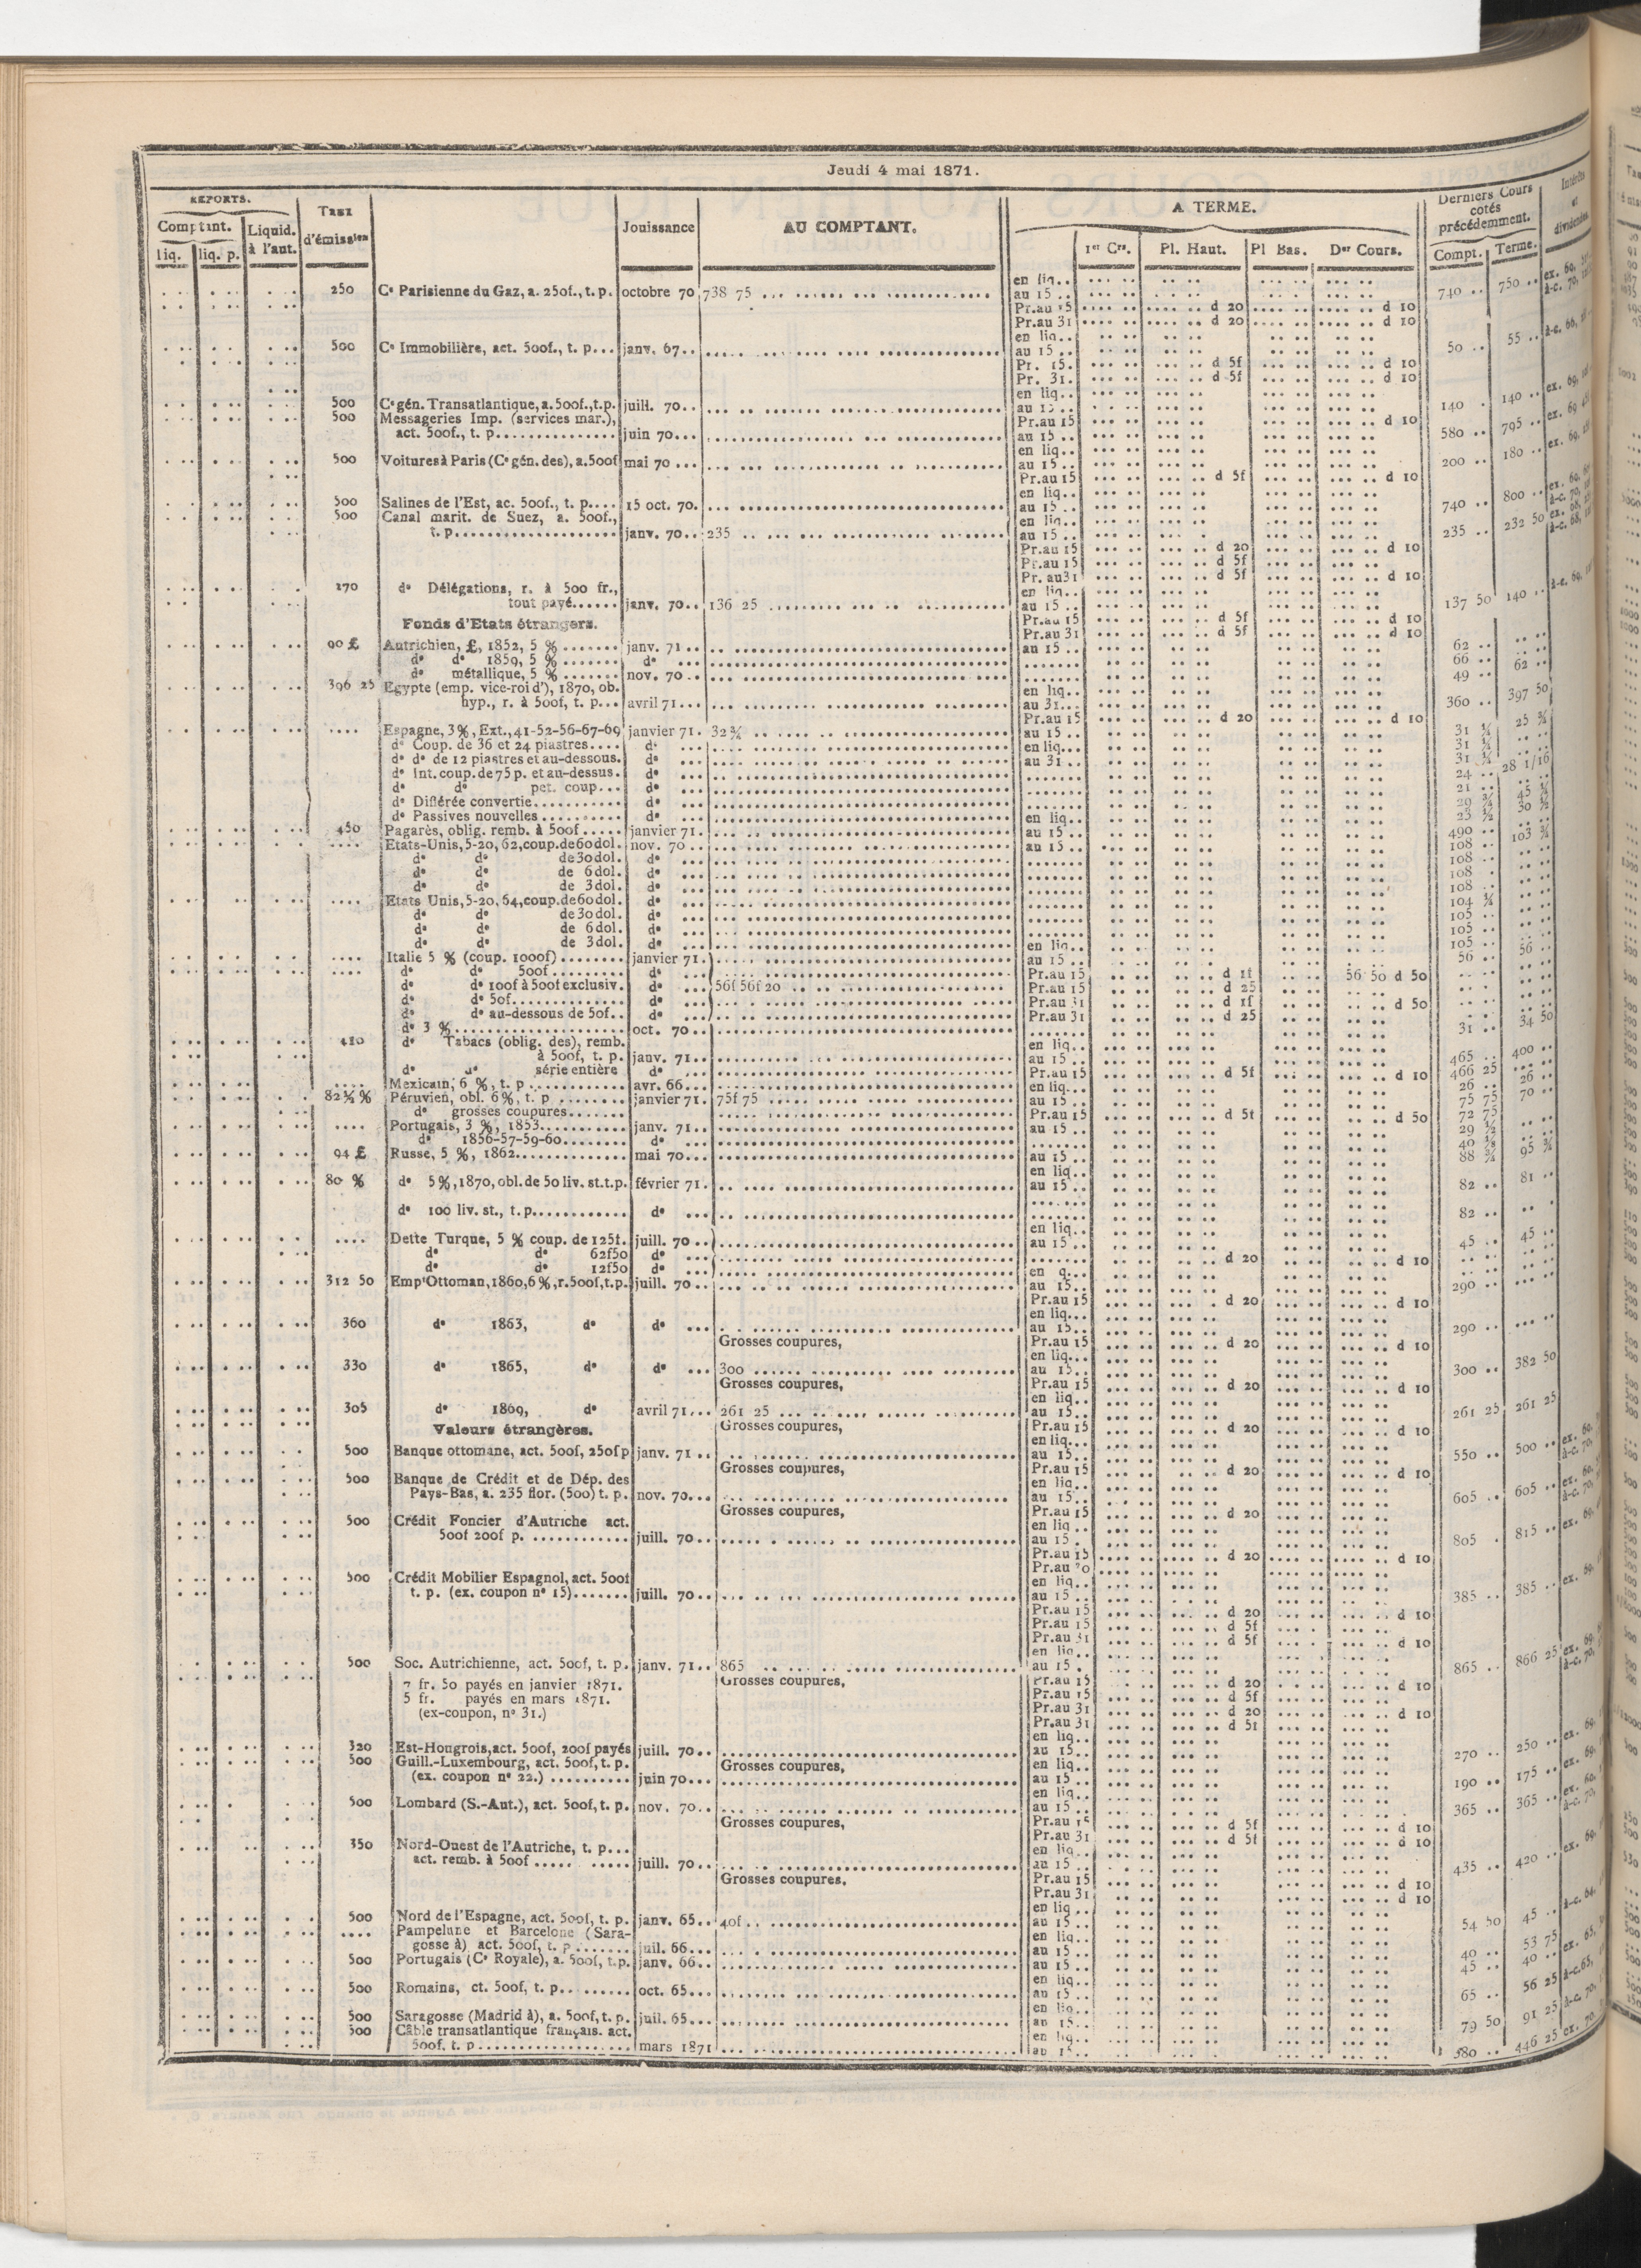 Jeudi 4 mai 1871.
REPORTS.
Comptant.
Liquid. à l'aut.
liq.
liq. p.
Taux d'émission
Jouissance
AU COMPTANT.
A TERME.
1er Crs.
Pl. Haut.
Pl Bas.
Der Cours.
Derniers Cours cotés précédemment.
Compt.
Terme.
Intérêts et dividendes
250 Ce Parisienne du Gaz, a. 250f., t. p. octobre 70 738 75 en liq.. 740 .. 750 ..
au 15 ..
Pr.au 15 d 20 d 10
Pr.au 31 d 20 d 10
en liq..
500 Ce Immobilière, act. 500f., t. p... janv. 67.. au 15 .. 50 .. 55 ..
Pr. 15. d 5f d 10
Pr. 31. d 5f d 10
en liq..
500 Ce gén. Transatlantique, a. 500f., t.p. juill. 70.. au 15 .. 140 .. 140 ..
500 Messageries Imp. (services mar.), Pr.au 15 d 10
act. 500f., t. p............... juin 70... au 15 .. 580 .. 795 ..
en liq..
500 Voitures à Paris (Ce gén. des), a. 500f mai 70 ... au 15 .. 200 .. 180 ..
Pr.au 15 d 5f d 10
en liq..
500 Salines de l'Est, ac. 500f., t. p.... 15 oct. 70. au 15 .. 740 .. 800 ..
500 Canal marit. de Suez, a. 500f., en liq..
t. p.................... janv. 70.. 235 au 15 .. 235 .. 232 50
Pr.au 15 d 20 d 10
Pr.au 15 d 5f
Pr. au31 d 5f d 10
270 do Délégations, r. à 500 fr., en liq..
tout payé...... janv. 70.. 136 25 au 15 .. 137 50 140 ..
Fonds d'Etats étrangers. Pr.au 15 d 5f d 10
Pr.au 31 d 5f d 10
90 £ Autrichien, £, 1852, 5 % ....... janv. 71 .. au 15 .. 62 ..
do do 1859, 5 % ....... do ... 66 ..
do métallique, 5 % ....... nov. 70 .. 49 .. 62 ..
396 25 Egypte (emp. vice-roi d'), 1870, ob. en liq..
hyp., r. à 500f, t. p... avril 71... au 31... 360 .. 397 50
Pr.au 15 d 20 d 10
.... Espagne, 3 %, Ext., 41-52-56-67-69 janvier 71. 32 ¾ au 15 .. 31 ¼ 25 ¾
do Coup. de 36 et 24 piastres.... do ... en liq... 31 ¼
do do de 12 piastres et au-dessous. do ... au 31 .. 31 ¼
do Int. coup. de 75 p. et au-dessus. do ... 24 .. 28 1/16
do do pet. coup... do ... 21 ..
do Différée convertie........... do ...
do Passives nouvelles .......... do ... en liq..
450 Pagarès, oblig. remb. à 500f ..... janvier 71. au 15 .. 490 ..
.... Etats-Unis, 5-20, 62, coup. de 60 dol. nov. 70 .. au 15 .. 108 .. 103 ¾
do do de 30 dol. do ... 108 ..
do do de 6 dol. do ... 108 ..
do do de 3 dol. do ... 108 ..
.... Etats Unis, 5-20, 64, coup. de 60 dol. do ... 104 ¾
do do de 30 dol. do ... 105 ..
do do de 6 dol. do ... 105 ..
do do de 3 dol. do ... en liq.. 105 ..
.... Italie 5 % (coup. 1000f) ........ janvier 71. au 15 .. 56 .. 56 ..
.... do do 500f ......... do ... Pr.au 15 d 1f 56 50 d 50
do do 100f à 500f exclusiv. do ... 56f 56f 20 Pr.au 15 d 25
do do 50f.............. do ... Pr.au 31 d 1f d 50
do do au-dessous de 50f.. do ... Pr.au 31 d 25
do 3 %..................... oct. 70.. 31 .. 34 50
410 do Tabacs (oblig. des), remb. en liq..
à 500f, t. p. janv. 71... au 15 .. 465 .. 400 ..
do do série entière do ... Pr.au 15 d 5f d 10 466 25
.... Mexicain, 6 %, t. p ............ avr. 66... en liq.. 26 .. 26 ..
82 ½ % Péruvien, obl. 6 %, t. p ........ janvier 71. 75f 75 au 15 .. 75 75 70 ..
do grosses coupures....... Pr.au 15 d 5f d 50 72 75
.... Portugais, 3 %, 1853........... janv. 71... au 15 .. 29 ½
do 1856-57-59-60........ do ...
94 £ Russe, 5 %, 1862.............. mai 70... au 15 .. 88 ¾ 95 ¾
en liq..
80 % do 5 %, 1870, obl. de 50 liv. st. t.p. février 71. au 15 .. 82 .. 81 ..
do 100 liv. st., t. p............ do ... 82 ..
en liq..
.... Dette Turque, 5 % coup. de 125f. juill. 70 .. au 15 .. 45 .. 45 ..
do do 62f50 do ... d 20 d 10
do do 12f50 do ...
312 50 Empt Ottoman, 1860, 6 %, r. 500f, t.p. juill. 70.. au 15.. 290 ..
Pr.au 15 d 20 d 10
en liq..
360 do 1863, do do ... au 15.. 290 ..
Grosses coupures, Pr.au 15 d 20 d 10
en liq...
330 do 1865, do do ... 300 au 15.. 300 .. 382 50
Grosses coupures, Pr.au 15 d 20 d 10
en liq..
305 do 1869, do avril 71... 261 25 au 15.. 261 25 261 25
Valeurs étrangères. Grosses coupures, Pr.au 15 d 20 d 10
en liq...
500 Banque ottomane, act. 500f, 250f p janv. 71 .. au 15.. 550 .. 500 ..
Grosses coupures, Pr.au 15 d 20 d 10
500 Banque de Crédit et de Dép. des en liq..
Pays-Bas, a. 235 flor. (500) t. p. nov. 70... au 15.. 605 .. 605 ..
Grosses coupures, Pr.au 15 d 20
500 Crédit Foncier d'Autriche act. en liq..
500f 200f p. ............ juill. 70.. au 15 .. 805 . 815 ..
Pr.au 15 d 20 d 10
Pr.au
500 Crédit Mobilier Espagnol, act. 500f en liq..
t. p. (ex. coupon no 15)....... juill. 70.. au 15 .. 385 .. 385 ..
Pr.au 15 d 20 d 10
Pr.au 15 d 5f
Pr.au 31 d 5f d 10
en liq..
500 Soc. Autrichienne, act. 500f, t. p. janv. 71.. 865 au 15 . 865 .. 866 25
7 fr. 50 payés en janvier 1871. Grosses coupures, Pr.au 15 d 20 d 10
5 fr. payés en mars 1871. Pr.au 15 d 5f
(ex-coupon, no 31.) Pr.au 31 d 20 d 10
Pr.au 31 d 5f
en liq..
320 Est-Hongrois, act. 500f, 200f payés juill. 70.. au 15.. 270 .. 250 ..
500 Guill.-Luxembourg, act. 500f, t. p. Grosses coupures, en liq..
(ex. coupon no 22.) .......... juin 70... au 15 .. 190 .. 175 ..
en liq..
500 Lombard (S.-Aut.), act. 500f, t. p. nov. 70.. au 15 .. 365 .. 365 ..
Grosses coupures, Pr.au 15 d 5f d 10
Pr.au 31 d 5f d 10
350 Nord-Ouest de l'Autriche, t. p... en liq..
act. remb. à 500f ..... ..... juill. 70.. au 15 .. 435 .. 420 ..
Grosses coupures, Pr.au 15 d 10
Pr.au 31 d 10
en liq..
500 Nord de l'Espagne, act. 500f, t. p. janv. 65.. 40f.. au 15 .. 54 50 45 ..
.... Pampelune et Barcelone (Sara- en liq..
gosse à) act. 500f, t. p ....... juil. 66... au 15 .. 40 .. 53 75
500 Portugais (Ce Royale), a. 500f, t.p. janv. 66.. au 15 .. 45 .. 40 ..
en liq..
500 Romains, ct. 500f, t. p.. ...... oct. 65... au 15 .. 65 .. 56 25
en liq..
500 Saragosse (Madrid à), a. 500f, t. p. juil. 65... au 15.. 79 50 91 25
500 Câble transatlantique français. act. en liq..
500f. t. p.................. mars 1871 au 15.. 380 .. 446 25